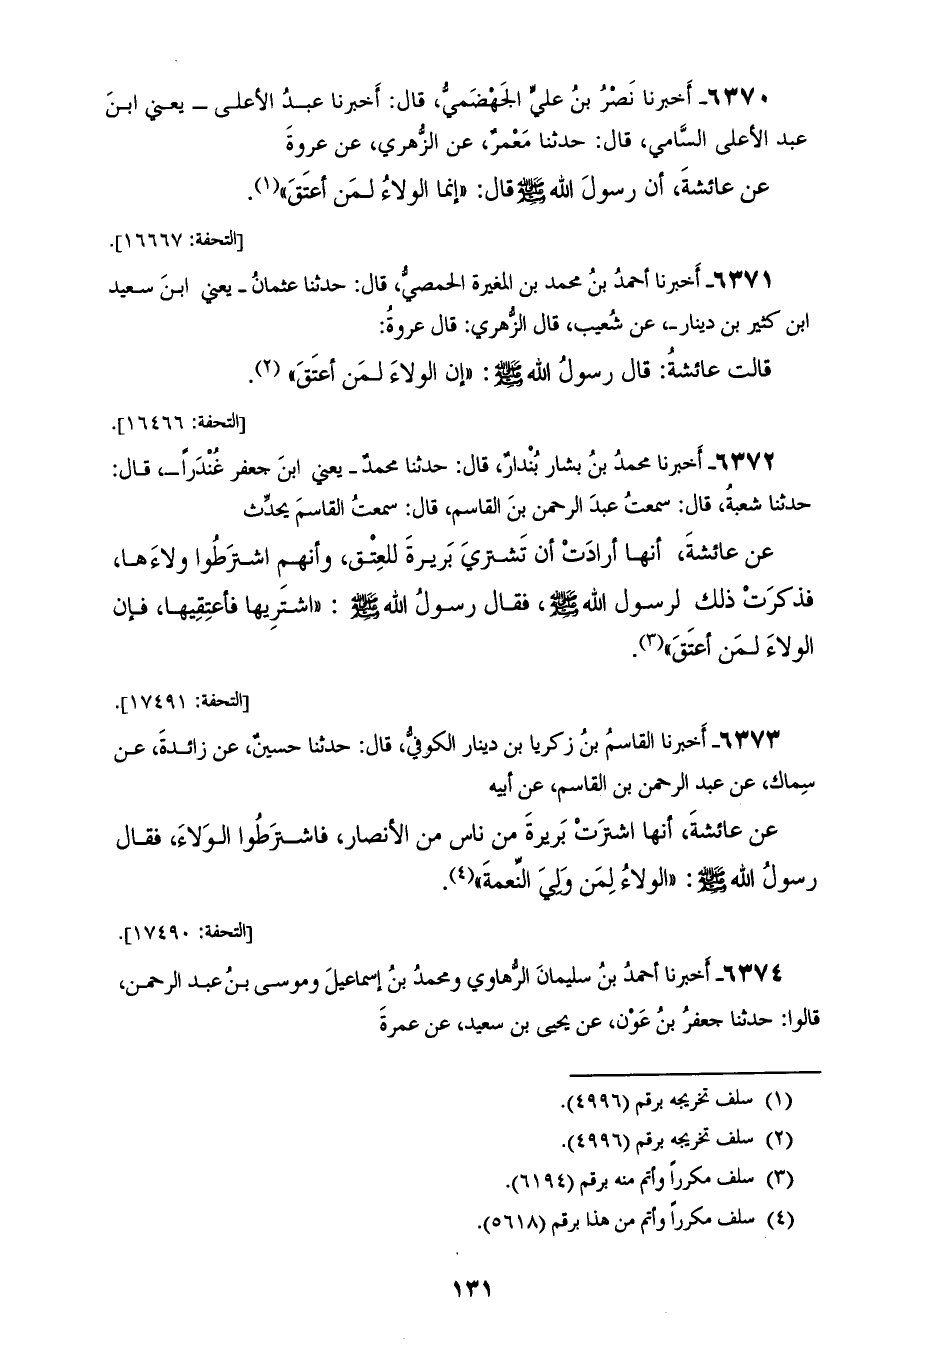 ٦٣٧٠ـ أَخبرنا نَصْرُ بنُ عليٍّ الجَهْضَميُّ، قال: أَخبرنا عبـدُ الأعلى ــ يعـني ابـنَ
عبد الأعلى السَّامي، قال: حدثنا مَعْمرٌ، عن الزُّهري، عن عروةَ
عن عائشةَ، أن رسولَ الله ﷺ قال: «إنما الولاءُ لـمَن أعتَقَ»(١).
[التحفة: ١٦٦٦٧].
٦٣٧١ـ أَخبرنا أحمدُ بنُ محمد بن المغيرة الحمصيُّ، قال: حدثنا عثمانُ ـ يعني ابـنَ سـعيد
ابن كثير بن دينار ـ، عن شُعيب، قال الزُّهري: قال عروةُ:
قالت عائشةُ: قال رسولُ الله ﷺ : «إن الولاءَ لـمَن أعتَقَ» (٢).
[التحفة: ١٦٤٦٦].
٦٣٧٢ـ أَخبرنا محمدُ بنُ بشار بُنْدارٌ، قال: حدثنا محمدٌ ـ يعني ابنَ جعفر غُنْدَراً ــ، قـال:
حدثنا شعبةُ، قال: سمعتُ عبدَ الرحمن بنَ القاسم، قال: سمعتُ القاسمَ يحدِّث
عن عائشةَ، أنهـا أرادَتْ أن تَشـتريَ بَريـرةَ للعِتْـق، وأنهـم اشـترَطُوا ولاءَهـا،
فذكرَتْ ذلك لرسول الله ﷺ ، فقـال رسـولُ الله ﷺ : «اشـترِيها فأعتِقِيهـا، فـإن
الولاءَ لـمَن أعتَقَ»(٣).
[التحفة: ١٧٤٩١].
٦٣٧٣ـ أَخبرنا القاسمُ بنُ زكريا بن دينار الكوفيُّ، قال: حدثنا حسينٌ، عن زائـدةَ، عـن
سِماك، عن عبد الرحمن بن القاسم، عن أبيه
عن عائشةَ، أنها اشترَتْ بَريرةَ من ناس من الأنصار، فاشـترَطُوا الـوَلاءَ، فقـال
رسولُ الله ﷺ : «الولاءُ لِمَن وَلِيَ النِّعمةَ»(٤).
[التحفة: ١٧٤٩٠].
٦٣٧٤ـ أَخبرنا أحمدُ بنُ سليمانَ الرُّهاوي ومحمدُ بنُ إسماعيلَ وموسـى بـنُ عبـد الرحمـن،
قالوا: حدثنا جعفرُ بنُ عَوْن، عن يحيى بن سعيد، عن عمرةَ
(١) سلف تخريجه برقم (٤٩٩٦).
(٢) سلف تخريجه برقم (٤٩٩٦).
(٣) سلف مكرراً وأتم منه برقم (٦١٩٤).
(٤) سلف مكرراً وأتم من هذا برقم (٥٦١٨).
١٣١